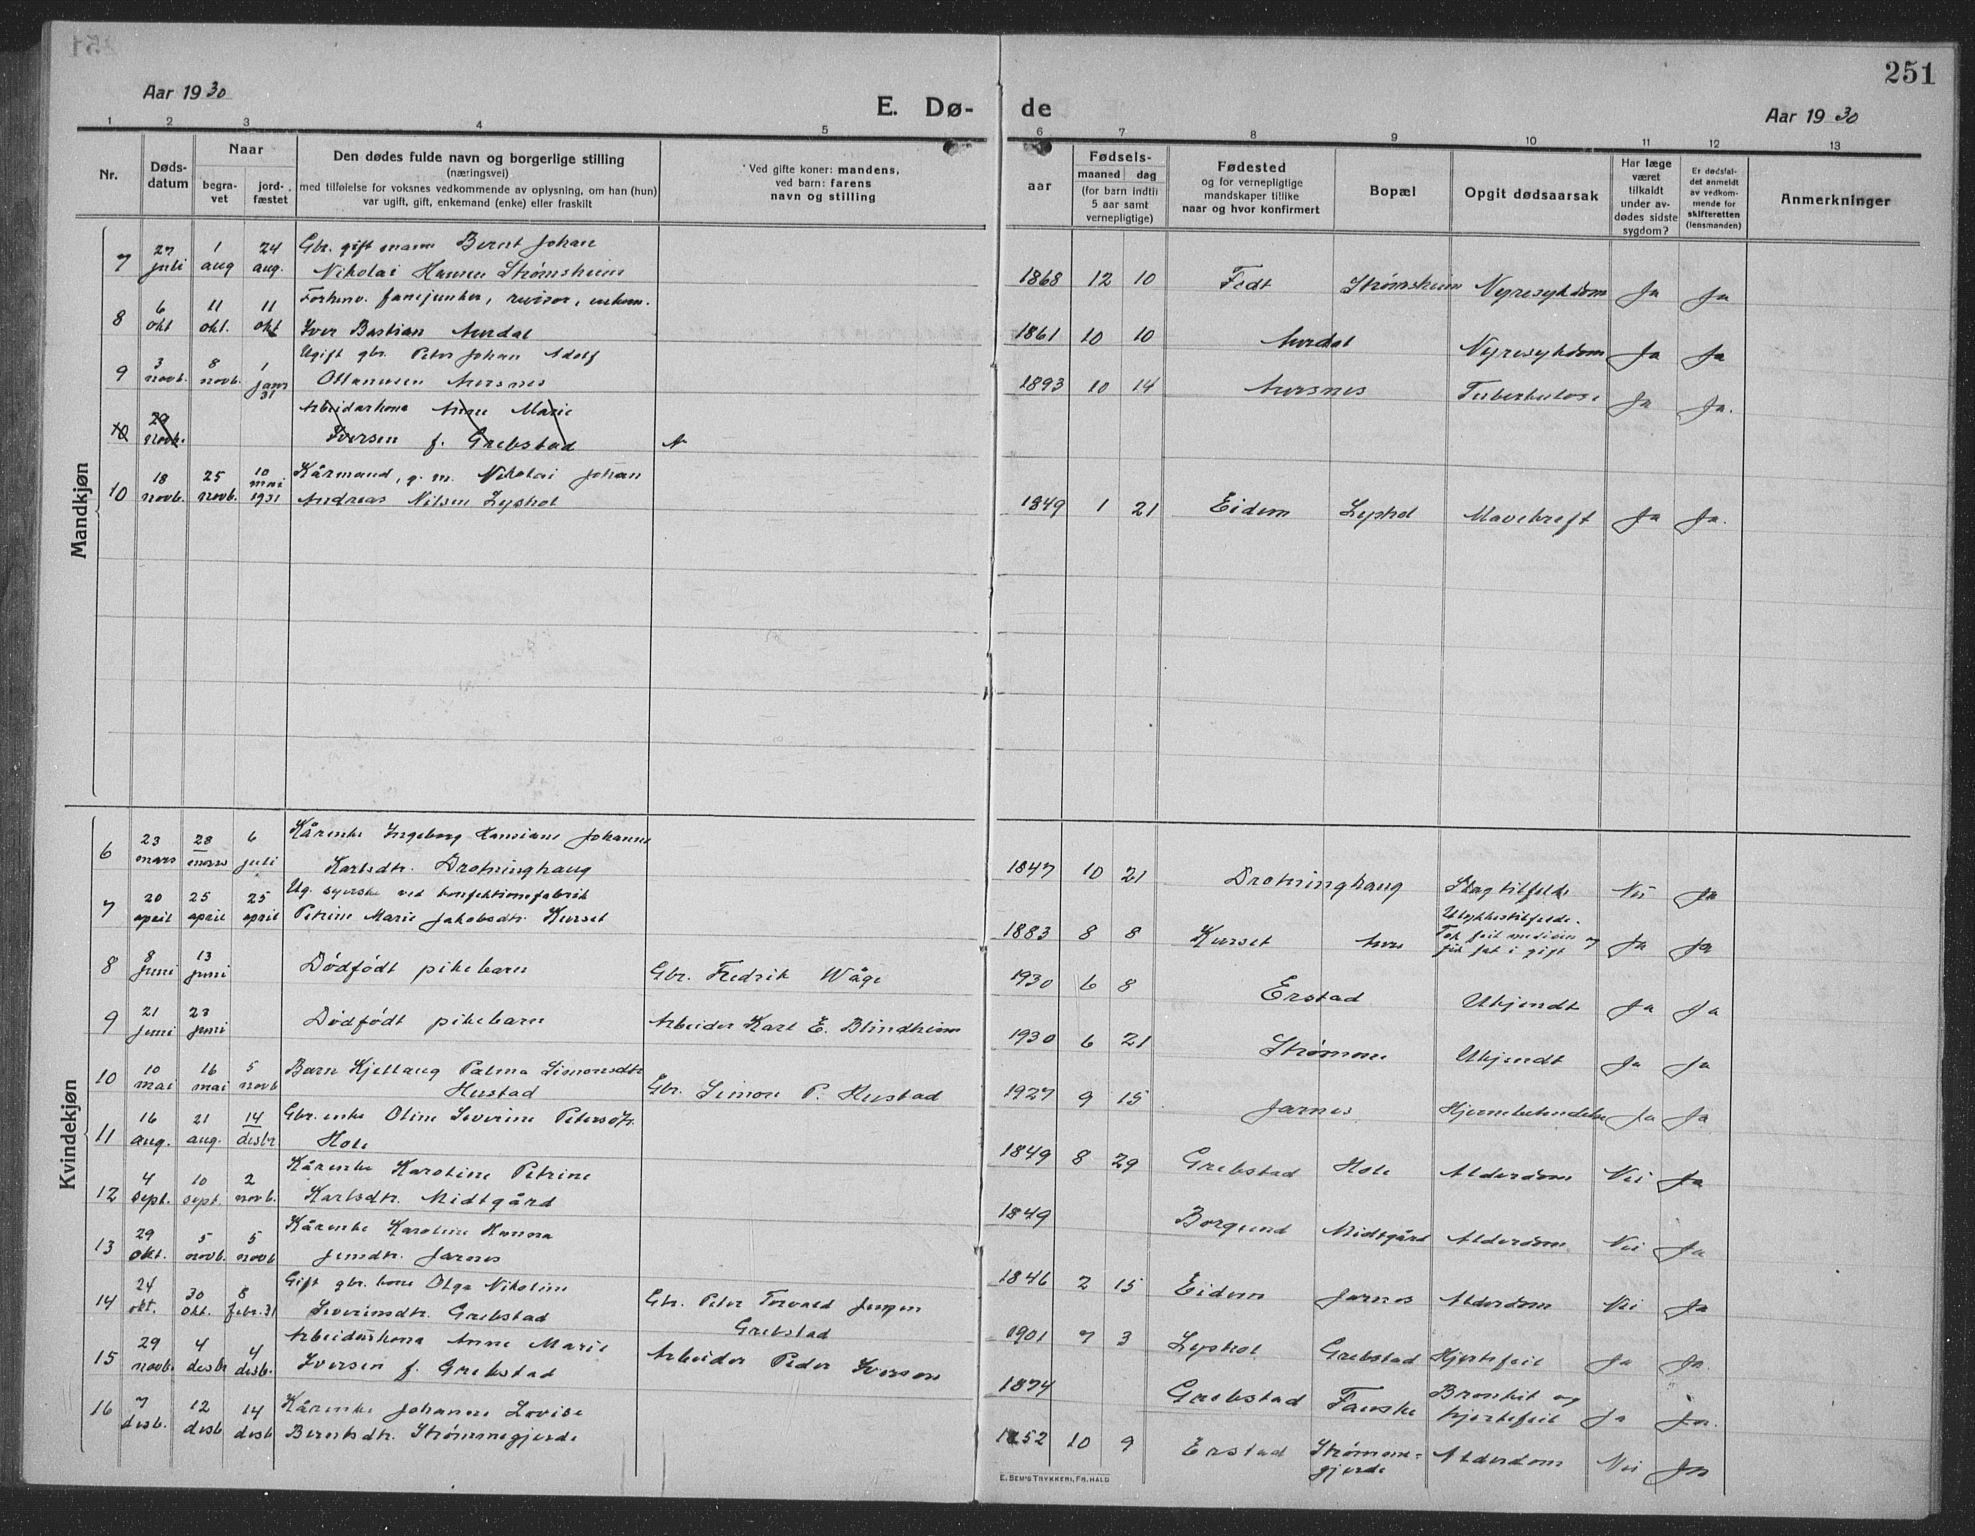 251
Aar 1930
E. Dø- de
Aar 1930
1 2 3 4 5 6 7 8 9 10 11 12 13
Nr.
Døds-
datum
Naar
begra-
vet
jord-
fæstet
Den dødes fulde navn og borgerlige stilling
(næringsvei)
med tilføielse for voksnes vedkommende av oplysning, om han (hun)
var ugift, gift, enkemand (enke) eller fraskilt
Ved gifte koner: mandens,
ved barn: farens
navn og stilling
aar
Fødsels-
maaned dag
(for barn indtil
5 aar samt
vernepligtige)
Fødested
og for vernepligtige
mandskaper tillike
naar og hvor konfirmert
Bopæl
Opgit dødsaarsak
Har læge
været
tilkaldt
under av-
dødes sidste
sygdom?
Er dødsfal-
det anmeldt
av vedkom-
mende for
skifteretten
(lensmanden)
Anmerkninger
Mandkjøn
7 27 juli 1 aug 24 aug. Gbr. gift mann Bernt Johan
Nikolai Hansen Strømsheim 1868 12 10 Fedt Strømsheim Nyresykdom Ja Ja
8 6 okt 11 okt. 11 okt Forhenv. fanejunker, revisor, enkem.
Iver Bastian Aurdal 1861 10 10 Aurdal Nyresykdom Ja Ja
9 3 novb. 8 novb. 1 janr 31 Ugift gbr. Peter Johan Adolf
Ottannsen Aursnes 1893 10 14 Aursnes Tuberkulose Ja Ja.
10 29 novb. Arbeiderkona Anne Marie
Iversen f. Grebstad A
10 18 novb. 25 novb. 10 mai 1931 Kårmand, g. m. Nikolai Johan
Andreas Nilsen Lyshol 1849 1 21 Eidem Lyshol Mavekreft Ja Ja.
Kvindekjøn
6 23 mars 28 mars 6 juli Kårenke Ingeborg Hansiane Johanne
Karlsdtr. Drotninghaug 1847 10 21 Drotninghaug Slagtilfelde Nei Ja
7 20 april 25 april 25 april Ug. syerske ved konfektionsfabrik
Petrine Marie Jakobsdtr. Kurset 1883 8 8 Kurset Aure Ulykkestilfelde.
Tok feil medisin og
fik fat i gift Ja Ja
8 8 juni 13 juni Dødfødt pikebarn Gbr. Fredrik Våge 1930 6 8 Erstad Ukjendt Ja Ja
9 21 juni 23 juni Dødfødt pikebarn Arbeider Karl E. Blindheim 1930 6 21 Strømme Ukjendt Ja Ja
10 10 mai 16 mai 5 novb Barn Kjellaug Palma Simonsdtr
Hustad Gbr. Simon P. Hustad 1927 9 15 Jarnes Hjernebetendelse Ja Ja
11 16 aug. 21 aug. 14 desbr Gbr. enke Oline Severine Petersdtr.
Hole 1849 8 29 Grebstad Hole Alderdom Nei Ja
12 4 sept. 10 sept. 2 novb. Kårenke Karoline Petrine
Karlsdtr. Midtgård 1849 Borgund Midtgård Alderdom Nei Ja
13 29 okt. 5 novb. 5 novb Kårenke Karoline Hanna
Jensdtr. Jarnes 1846 2 15 Eidem Jarnes Alderdom Nei Ja
14 24 okt. 30 okt. 8 febr. 31 Gift gbr. kone Olga Nikoline
Severinsdtr. Grebstad Gbr. Peter Torvald Jørgen
Grebstad 1901 7 3 Lyshol Grebstad Hjertefeil Ja Ja.
15 29 novb. 4 desbr 4 desb. Arbeiderkona Anne Marie
Iversen f. Grebstad Arbeider Peder Iversen 1874 Grebstad Fauske Bronkit og
hjertefeil Ja Ja.
16 7 desb. 12 desb 14 desb Kårenke Johanne Lovise
Berntsdtr. Strømmegjerde 1852 10 9 Erstad Strømme-
gjerde Alderdom Nei Ja
E. SEM'S TRYKKERI, FR.HALD